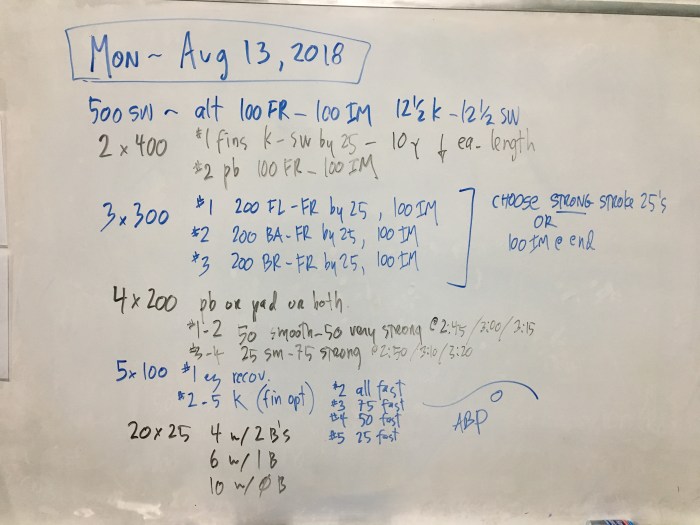 MON ~ Aug 13, 2018
500 SW ~ alt 100 FR - 100 IM 12½ K - 12½ SW
2 x 400 #1 fins K - SW by 25 - 10 Y ↓ ea. length
#2 pb 100 FR - 100 IM
3 x 300 #1 200 FL - FR by 25, 100 IM
#2 200 BA - FR by 25, 100 IM
#3 200 BR - FR by 25, 100 IM
CHOOSE STRONG stroke 25's
OR
100 IM @ end
4 x 200 pb or pad or both
#1-2 50 smooth - 50 very strong @ 2:45 / 3:00 / 3:15
#3-4 25 sm - 75 strong @ 2:50 / 3:10 / 3:20
5x100 #1 ez recov.
#2-5 K (fin opt)
#2 all fast
#3 75 fast
#4 50 fast
#5 25 fast
ABP
20x25 4 w/ 2 B's
6 w/ 1 B
10 w/ Ø B